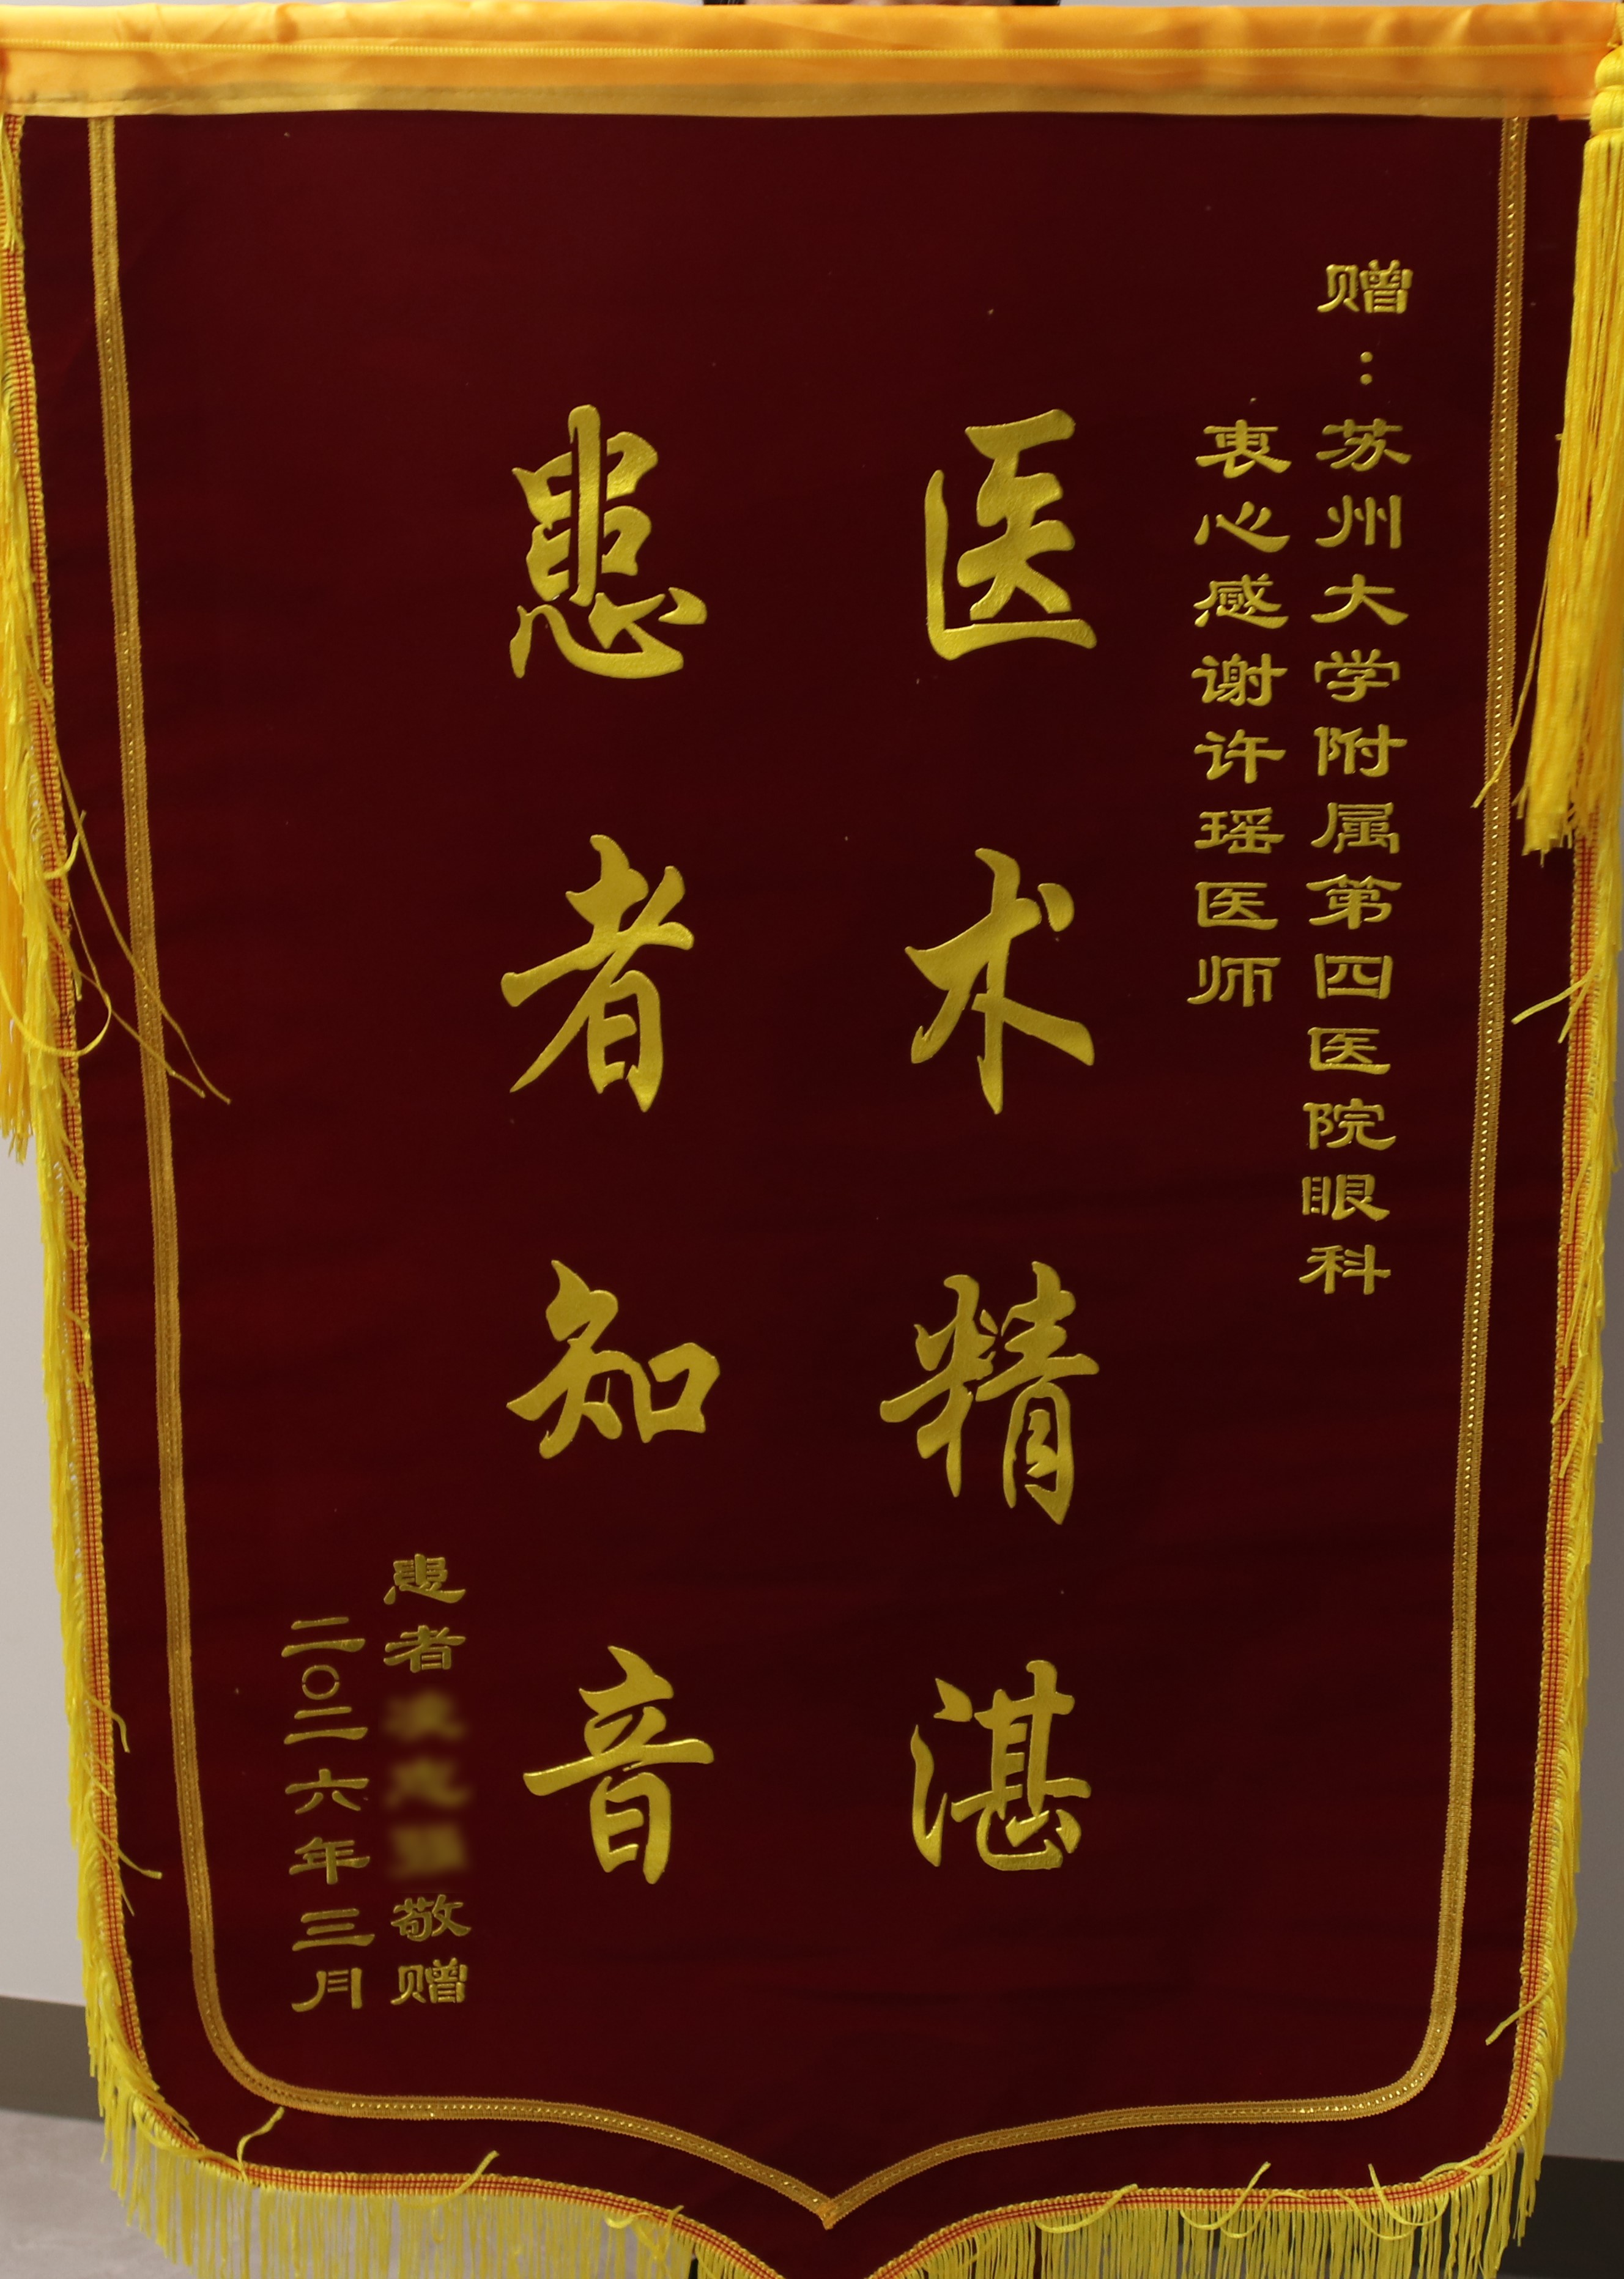 赠：苏州大学附属第四医院眼科
衷心感谢许瑶医师
医术精湛
患者知音
患者敬赠
二〇二六年三月